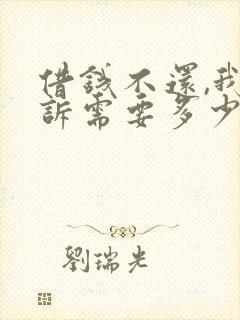 借錢不還,我
訴需要多少
劉瑞光